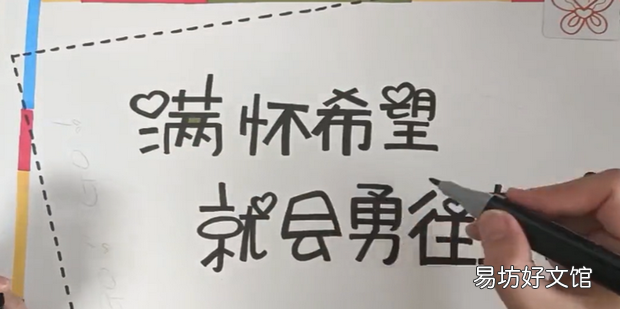 满怀希望
就会勇往
易坊好文馆